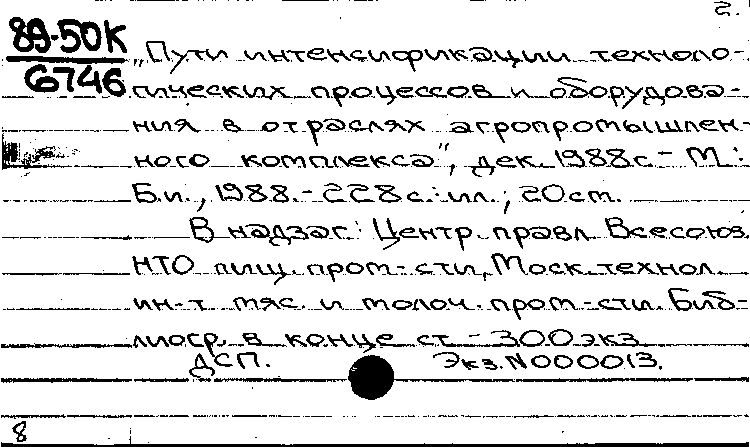 2.
89-50К
6746
„Пути интенсификации техноло-
гических процессов и оборудова-
ния в отраслях агропромышлен-
ного комплекса", дек. 1988г. - М.:
Б.и., 1988. - 228с.: ил.; 20см.
В надзаг.: Центр. правл. Всесоюз.
НТО пищ. пром-сти, Моск. технол.
ин-т мяс. и молоч. пром-сти. Биб-
лиогр. в конце ст. - 300экз.
ДСП. Экз. N000013.
8